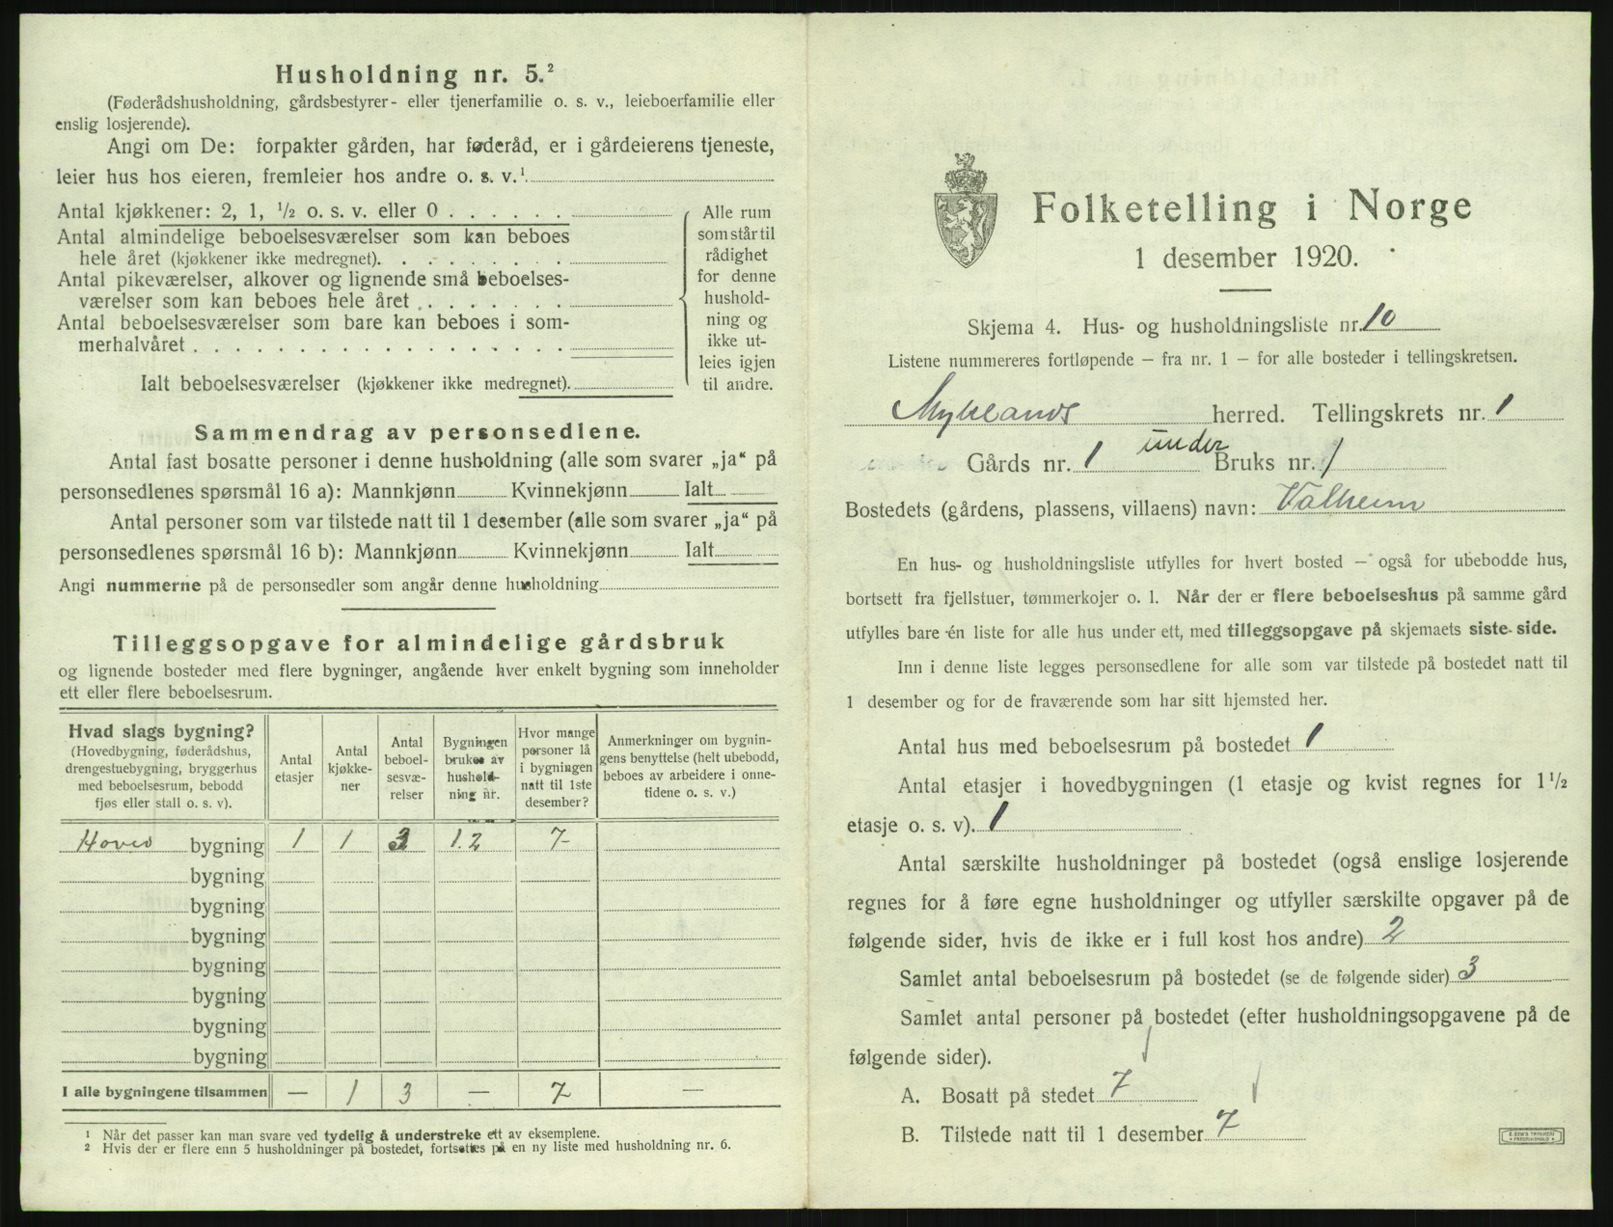 Husholdning nr. 5.²
(Føderådshusholdning, gårdsbestyrer- eller tjenerfamilie o. s. v., leieboerfamilie eller
enslig losjerende).
Angi om De: forpakter gården, har føderåd, er i gårdeierens tjeneste,
leier hus hos eieren, fremleier hos andre o. s. v.¹
Antal kjøkkener: 2, 1, ½ o. s. v. eller 0 . . . . . .
Antal almindelige beboelsesværelser som kan beboes
hele året (kjøkkener ikke medregnet). . . . . . . .
Antal pikeværelser, alkover og lignende små beboelses-
værelser som kan beboes hele året . . . . . . .
Antal beboelsesværelser som bare kan beboes i som-
merhalvåret . . . . . . . . . . . . . . . . . .
Ialt beboelsesværelser (kjøkkener ikke medregnet).
Alle rum
som står til
rådighet
for denne
hushold-
ning og
ikke ut-
leies igjen
til andre.
Sammendrag av personsedlene.
Antal fast bosatte personer i denne husholdning (alle som svarer „ja“ på
personsedlenes spørsmål 16 a): Mannkjønn Kvinnekjønn Ialt
Antal personer som var tilstede natt til 1 desember (alle som svarer „ja“ på
personsedlenes spørsmål 16 b): Mannkjønn Kvinnekjønn Ialt
Angi nummerne på de personsedler som angår denne husholdning
Tilleggsopgave for almindelige gårdsbruk
og lignende bosteder med flere bygninger, angående hver enkelt bygning som inneholder
ett eller flere beboelsesrum.
Hvad slags bygning?
(Hovedbygning, føderådshus,
drengestuebygning, bryggerhus
med beboelsesrum, bebodd
fjøs eller stall o. s. v).
Antal
etasjer
Antal
kjøkke-
ner
Antal
beboel-
sesvæ-
relser
Bygningen
brukes av
hushold-
ning nr.
Hvor mange
personer lå
i bygningen
natt til 1ste
desember?
Anmerkninger om bygnin-
gens benyttelse (helt ubebodd,
beboes av arbeidere i onne-
tidene o. s. v.)
Hoved bygning 1 1 3 1.2 7
bygning
bygning
bygning
bygning
bygning
bygning
bygning
I alle bygningene tilsammen — 1 3 — 7 —
¹ Når det passer kan man svare ved tydelig å understreke ett av eksemplene.
² Hvis der er flere enn 5 husholdninger på bostedet, fortsettes på en ny liste med husholdning nr. 6.
Folketelling i Norge
1 desember 1920.
Skjema 4. Hus- og husholdningsliste nr. 10
Listene nummereres fortløpende — fra nr. 1 — for alle bosteder i tellingskretsen.
Myklands herred. Tellingskrets nr. 1
Gårds nr. 1 under Bruks nr. 1
Bostedets (gårdens, plassens, villaens) navn: Valheim
En hus- og husholdningsliste utfylles for hvert bosted — også for ubebodde hus,
bortsett fra fjellstuer, tømmerkojer o. l. Når der er flere beboelseshus på samme gård
utfylles bare én liste for alle hus under ett, med tilleggsopgave på skjemaets siste side.
Inn i denne liste legges personsedlene for alle som var tilstede på bostedet natt til
1 desember og for de fraværende som har sitt hjemsted her.
Antal hus med beboelsesrum på bostedet 1
Antal etasjer i hovedbygningen (1 etasje og kvist regnes for 1½
etasje o. s. v). 1
Antal særskilte husholdninger på bostedet (også enslige losjerende
regnes for å føre egne husholdninger og utfyller særskilte opgaver på de
følgende sider, hvis de ikke er i full kost hos andre) 2
Samlet antal beboelsesrum på bostedet (se de følgende sider) 3
Samlet antal personer på bostedet (efter husholdningsopgavene på de
følgende sider).
A. Bosatt på stedet 7
B. Tilstede natt til 1 desember 7